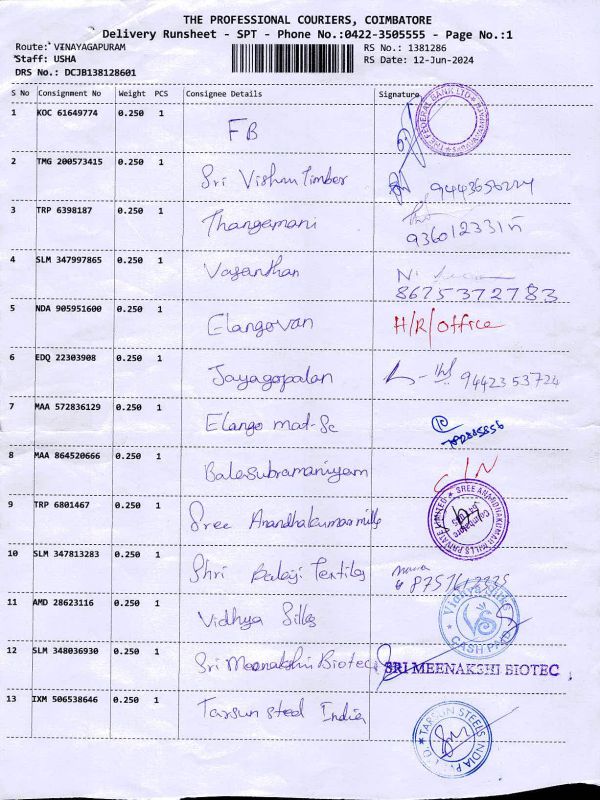 THE PROFESSIONAL COURIERS, COIMBATORE
Delivery Runsheet - SPT - Phone No.:0422-3505555 - Page No.:1
Route: VINAYAGAPURAM RS No.: 1381286
Staff: USHA RS Date: 12-Jun-2024
DRS No.: DCJB138128601
S No Consignment No Weight PCS Consignee Details Signature
1 KOC 61649774 0.250 1 FB THE FEDERAL BANK LTD
2 TMG 200573415 0.250 1 Sri Vishnu Timber
3 TRP 6398187 0.250 1 Thangamani
4 SLM 347997865 0.250 1 Vasanthan 8675372783
5 NDA 905951600 0.250 1 Elangovan H/R/office
6 EDQ 22303908 0.250 1 Jayagopalan 9442353724
7 MAA 572836129 0.250 1 Elango mat-Sc
8 MAA 864520666 0.250 1 Balasubramaniyam
9 TRP 6801467 0.250 1 Sree Anandhakumar mills SREE ANANDHAKUMAR MILLS PRIVATE LIMITED
10 SLM 347813283 0.250 1 Shri Balaji Textiles
11 AMD 28623116 0.250 1 Vidhya Silks CASH PAID
12 SLM 348036930 0.250 1 Sri Meenakshi Biotec SRI MEENAKSHI BIOTEC
13 IXM 506538646 0.250 1 Tarsun steel India TARSUN STEELS INDIA